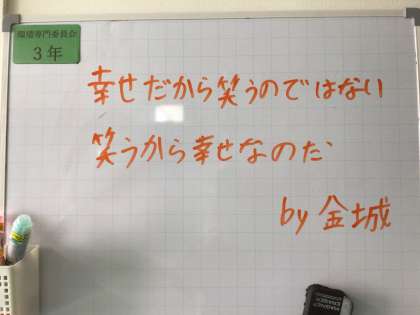 環境専門委員会
3年
幸せだから笑うのではない
笑うから幸せなのだ
by 金城